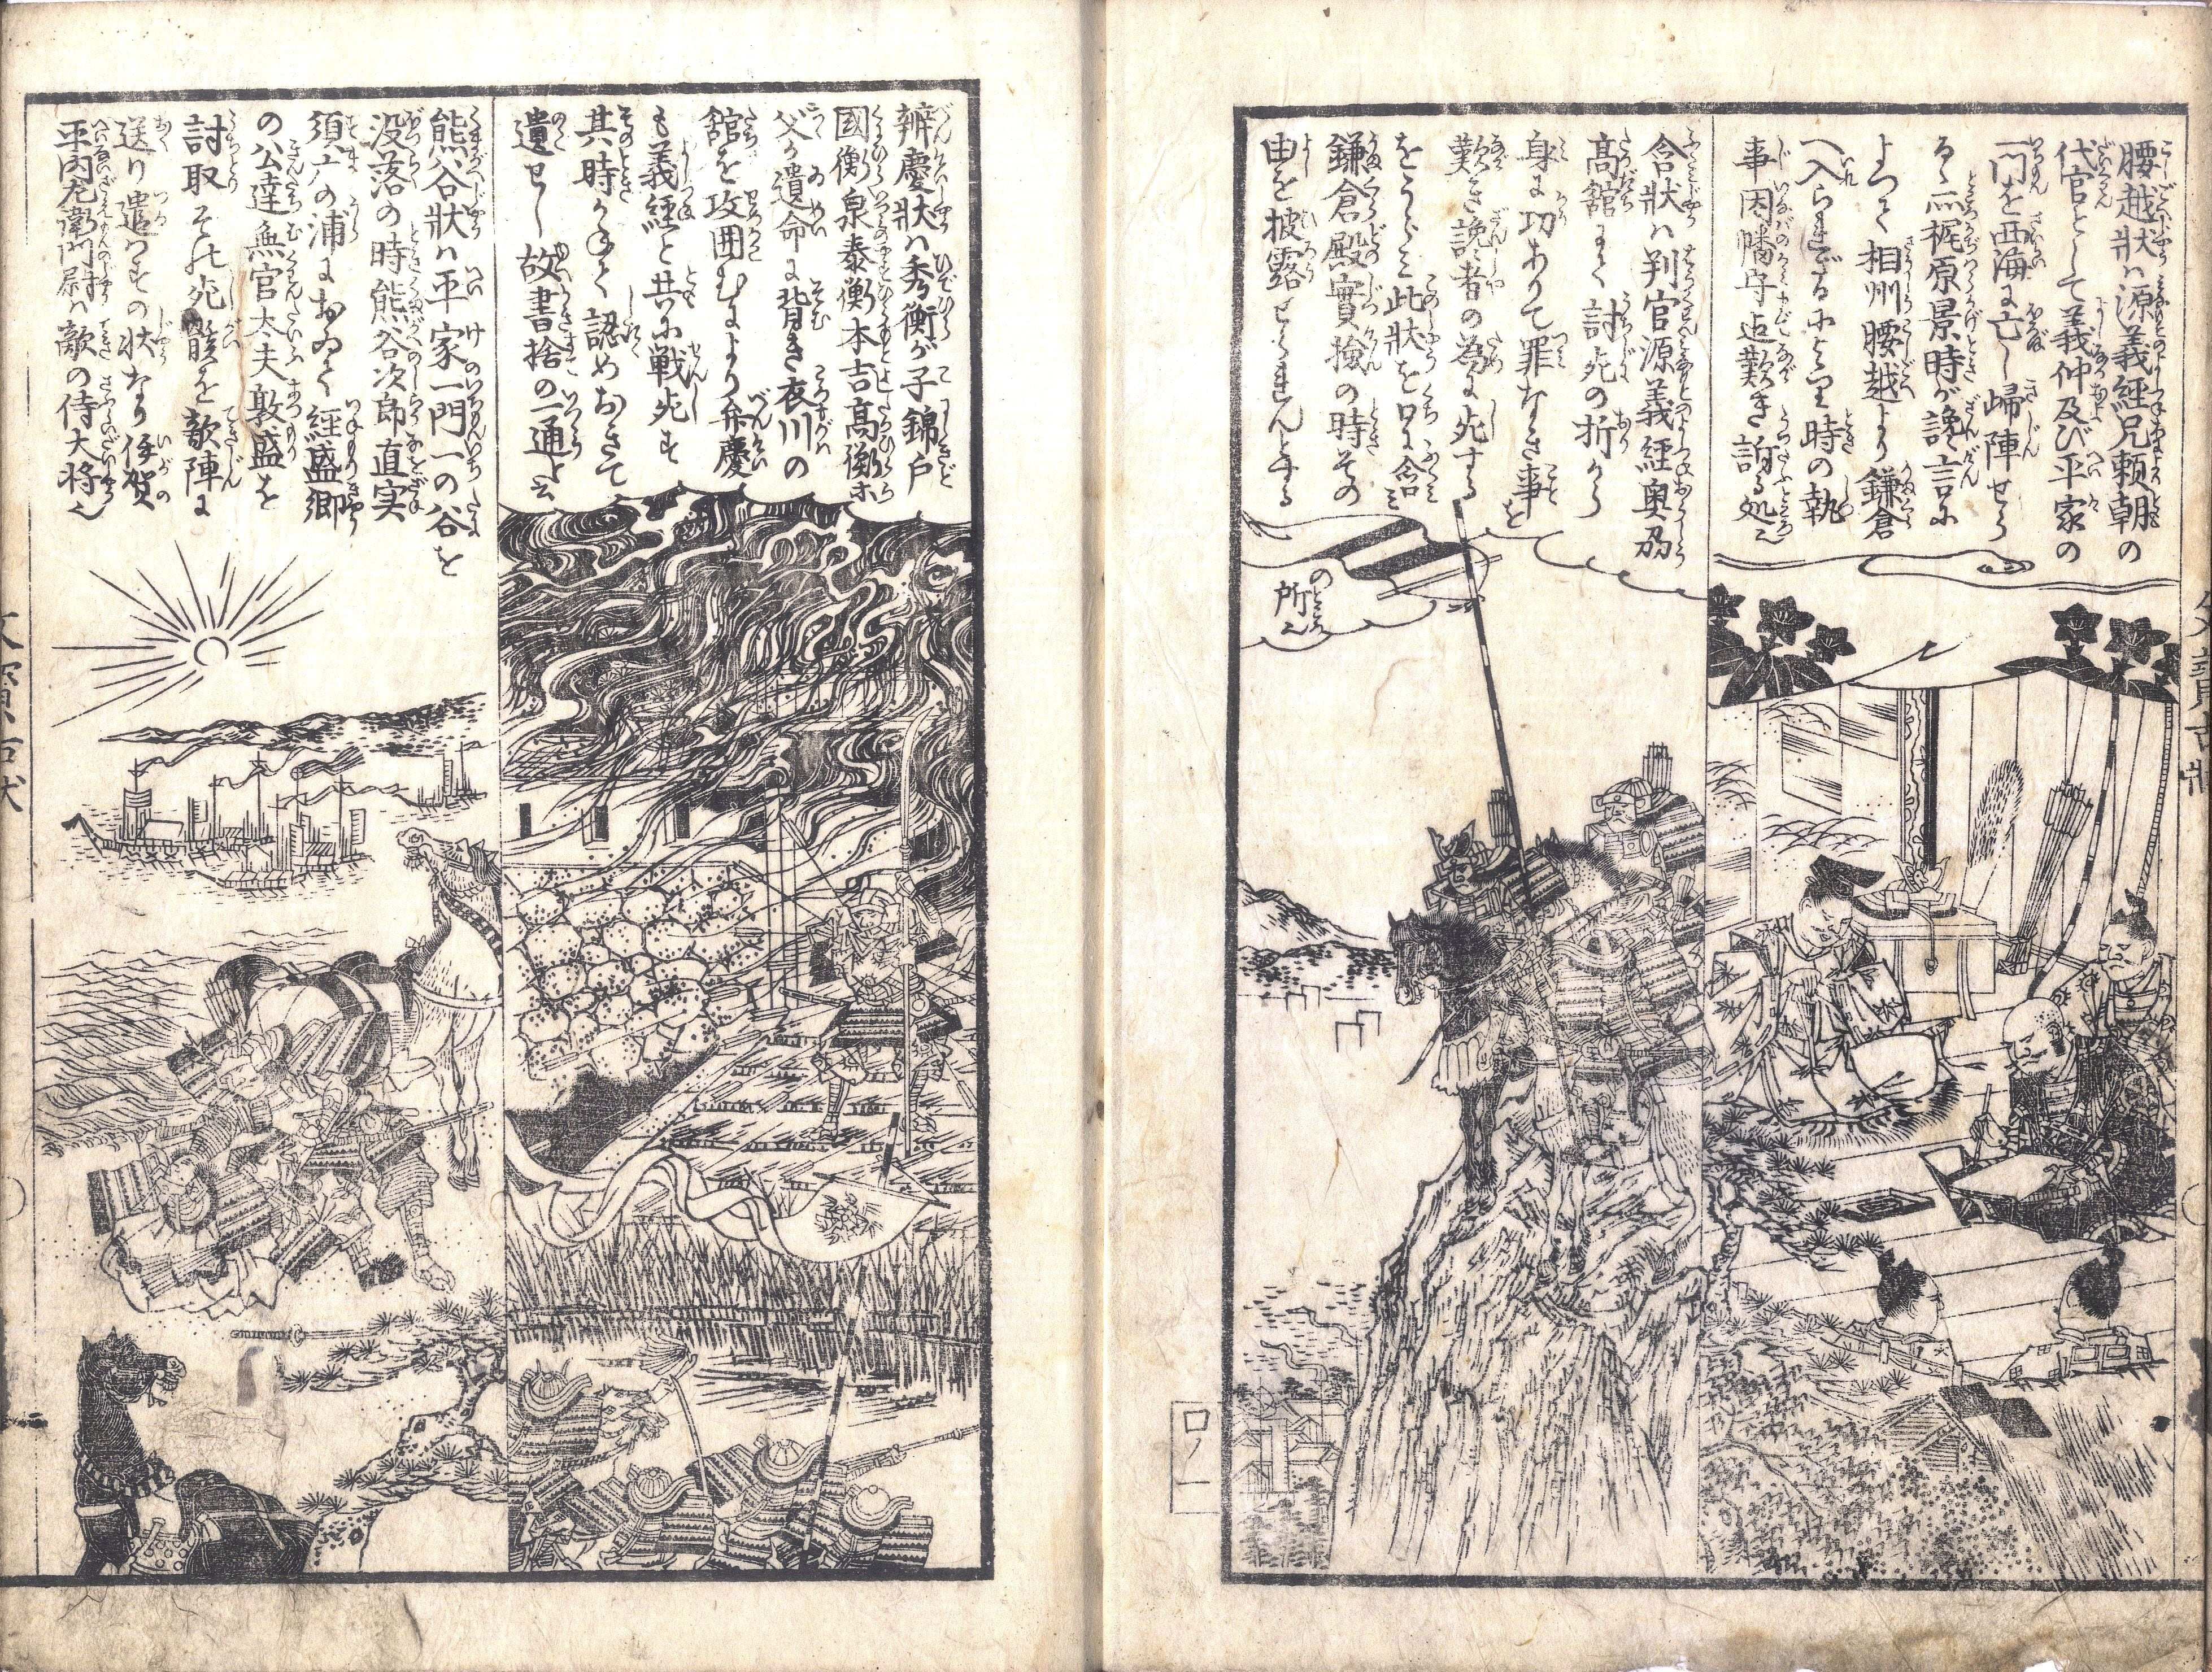 腰越状ハ源義経兄頼朝の
代官として義仲及び平家の
一門を西海に亡し帰陣せら
るゝ処梶原景時が讒言に
よつて相州腰越より鎌倉
へ入られざるにより時の執
事因幡守迄歎き訴る処也
含状ハ判官源義経奥刕
高舘にて討死の折から
身に功ありて罪なき事を
歎き讒者の為に死する
をうらみ此状を口に含み
鎌倉殿實撿の時その
由を披露せられんとする
所也
辨慶状ハ秀衡が子錦戸
國衡泉泰衡本吉髙衡ホ
父の遺命に背き衣川の
舘を攻囲むより弁慶
も義経と共に戦死す
其時かねて認めおきて
遺せし故書捨の一通と云
熊谷状ハ平家一門一の谷を
没落の時熊谷次郎直実
須广の浦におゐて経盛卿
の公達無官太夫敦盛を
討取その死骸を敵陣に
送り遣ハすその状なり伊賀
平内左衛門尉ハ敵の侍大将也
文寳古状
口ノ一